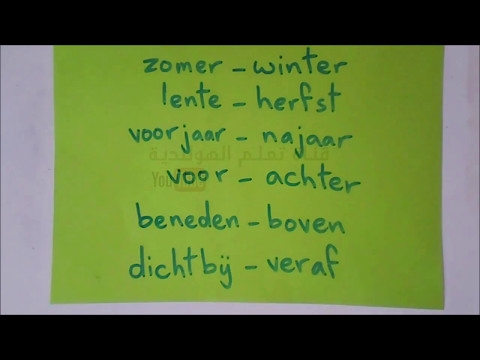 zomer - winter
lente - herfst
voorjaar - najaar
قناة تعلم الهولندية
voor - achter
YouTube
beneden - boven
dichtbij - veraf